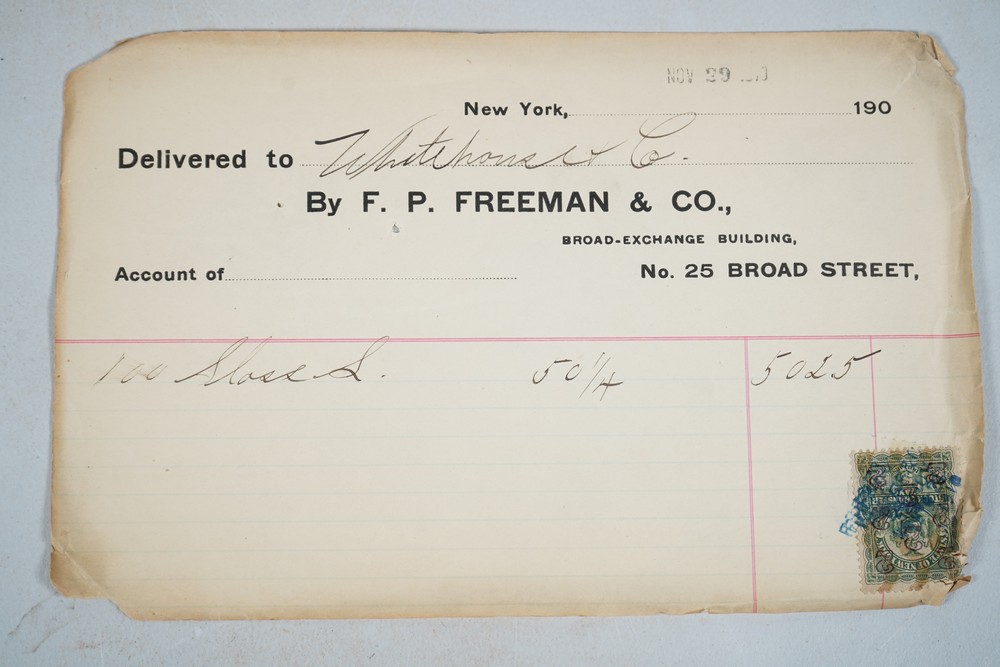 NOV 29
New York, 190
Delivered to Whitehouse & Co.
By F. P. FREEMAN & CO.,
BROAD-EXCHANGE BUILDING,
Account of No. 25 BROAD STREET,
100 Sloss S. 50 1/4 5025